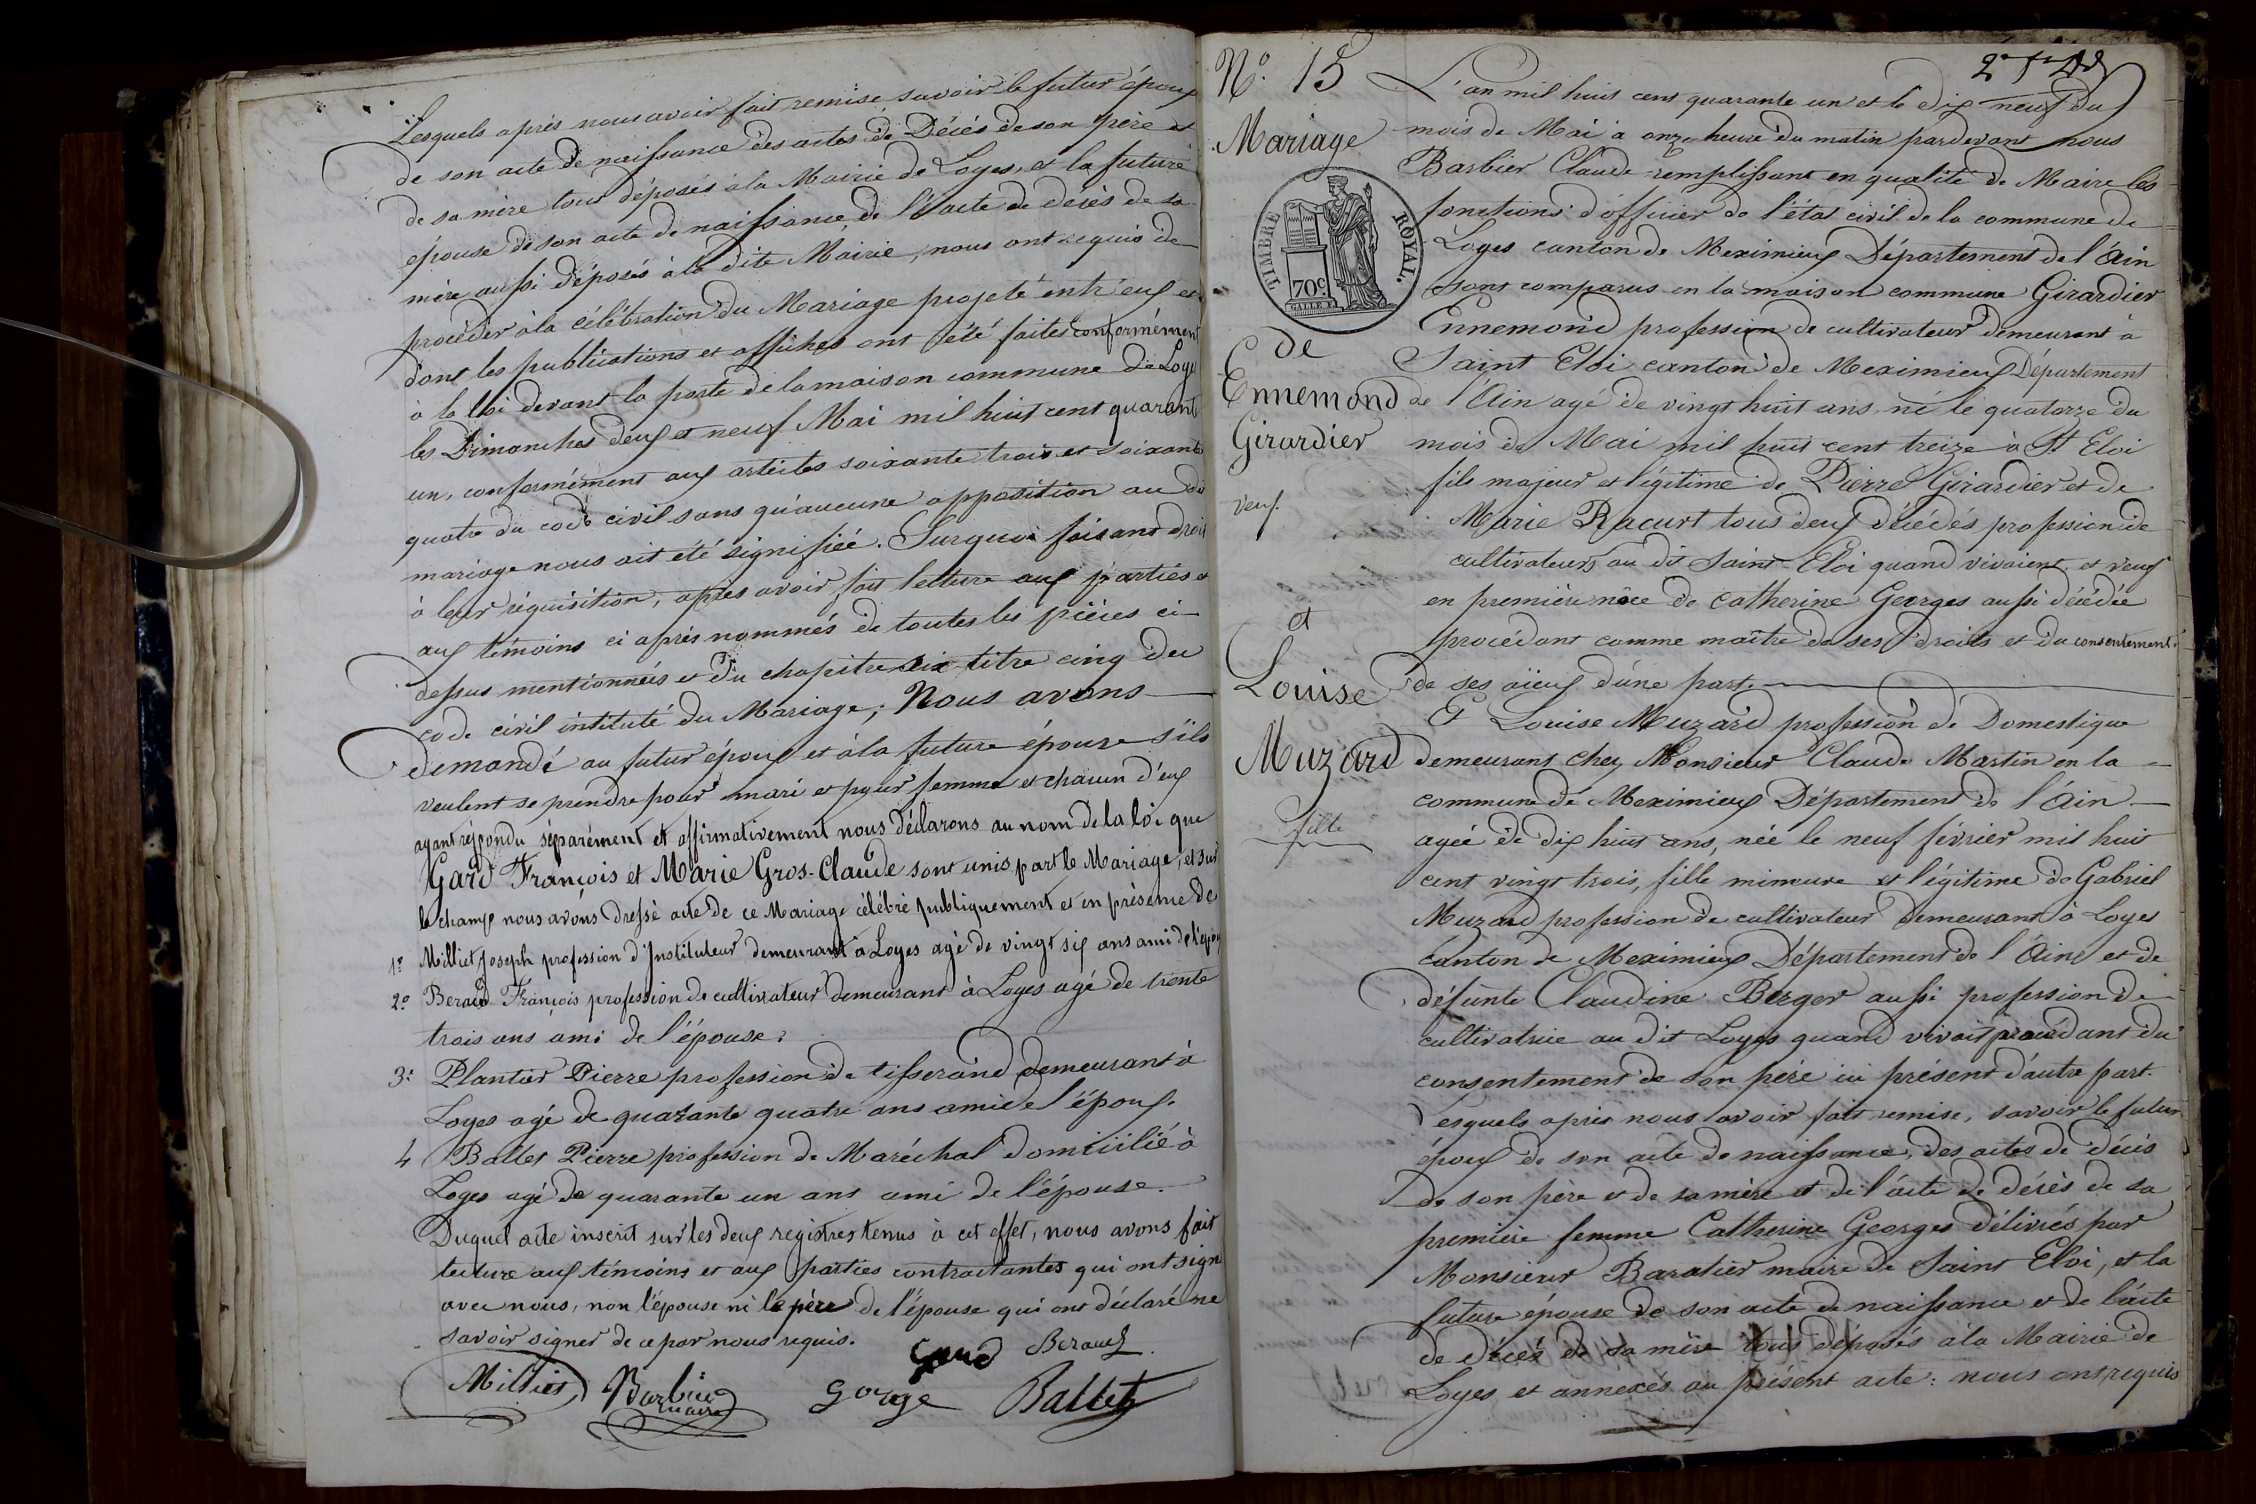 Lesquels après nous avoir fait remise, savoir le futur époux
de son acte de naissance des actes de Décès de son père et
de sa mère tous déposés à la Mairie de Loyes, et la future
épouse de son acte de naissance, de l'acte de décès de sa
mère aussi déposés à la dite Mairie, nous ont requis de
procéder à la célébration du Mariage projeté entr'eux et
dont les publications et affiches ont été faites conformément
à la loi devant la porte de la maison commune de Loyes
les Dimanches deux et neuf Mai mil huit cent quarante
un, conformément aux articles soixante trois et soixante
quatre du code civil sans qu'aucune opposition au dit
mariage nous ait été signifiée. Surquoi faisant droit
à leur réquisition, après avoir fait lecture aux parties et
aux témoins ci après nommés de toutes les pièces ci
dessus mentionnées et du chapitre six titre cinq du
code civil intitulé du Mariage; Nous avons
demandé au futur époux et à la future épouse s'ils
veulent se prendre pour mari et pour femme et chacun d'eux
ayant répondu séparément et affirmativement nous déclarons au nom de la loi que
Gard François et Marie Gros-Claude sont unis part le Mariage, et sur
le champ nous avons dressé acte de ce Mariage célébré publiquement et en présence de
1º Milliet Joseph profession d'Instituteur demeurant à Loyes agé de vingt six ans ami de l'époux
2º Beraud François profession de cultivateur demeurant à Loyes agé de trente
trois ans ami de l'épouse.
3º Plantier Pierre profession de tisserand demeurant à
Loyes agé de quarante quatre ans ami de l'époux.
4 Ballet Pierre profession de Maréchal domicilié à
Loyes agé de quarante un ans ami de l'épouse.
Duquel acte inscrit sur les deux registres tenus à cet effet, nous avons fait
lecture aux témoins et aux parties contractantes qui ont signé
avec nous, non l'épouse ni le père de l'épouse qui ont déclaré ne
savoir signer de ce par nous requis.
Gard Beraud
Milliet Barbier George Ballet
maire
Nº 15
Mariage
TIMBRE ROYAL.
70 c.
de
Ennemond
Girardier
veuf.
et
Louise
Muzard
fille
L'an mil huit cent quarante un et le dix neuf du
mois de Mai à onze heure du matin pardevant nous
Barbier Claude remplissant en qualité de Maire les
fonctions d'officier de l'état civil de la commune de
Loyes canton de Meximieux Département de l'Ain
sont comparus en la maison commune Girardier
Ennemond profession de cultivateur demeurant à
Saint Eloi canton de Meximieux Département
de l'Ain agé de vingt huit ans né le quatorze du
mois de Mai mil huit cent treize à St Eloi
fils majeur et légitime de Pierre Girardier et de
Marie Racurt tous deux décédés profession de
cultivateurs au dit Saint-Eloi quand vivaient, et veuf
en première nôce de Catherine Georges aussi décédée
procédant comme maître de ses droits et du consentement
de ses aïeux d'une part.
Et Louise Muzard profession de Domestique
demeurant chez Monsieur Claude Martin en la
commune de Meximieux Département de l'Ain
agée de dix huit ans, née le neuf février mil huit
cent vingt trois, fille mineure et légitime de Gabriel
Muzard profession de cultivateur demeurant à Loyes
canton de Meximieux Département de l'Ain et de
défunte Claudine Berger aussi profession de
cultivatrice au dit Loyes quand vivait procédant du
consentement de son père ici présent d'autre part.
Lesquels après nous avoir fait remise, savoir le futur
époux de son acte de naissance, des actes de décès
de son père et de sa mère et de l'acte de décès de sa
première femme Catherine Georges délivrés par
Monsieur Baratier maire de Saint Eloi, et la
future épouse de son acte de naissance et de l'acte
de décès de sa mère tous déposés à la Mairie de
Loyes et annexés au présent acte: nous ont requis